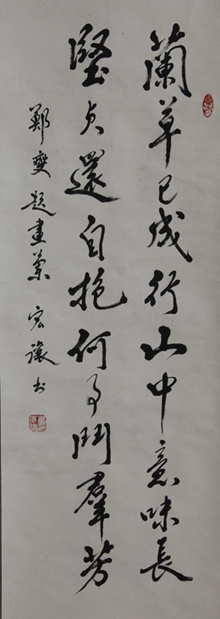 蘭草已成行山中意味長
堅貞還自抱何事鬥羣芳
鄭燮題畫蘭 宏讓書